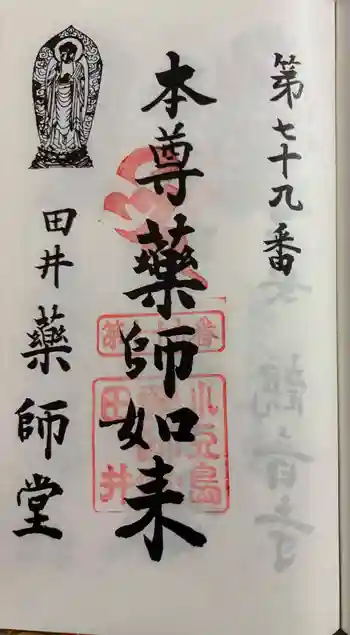 第七十九番
本尊藥師如来
田井藥師堂
小豆島
田井